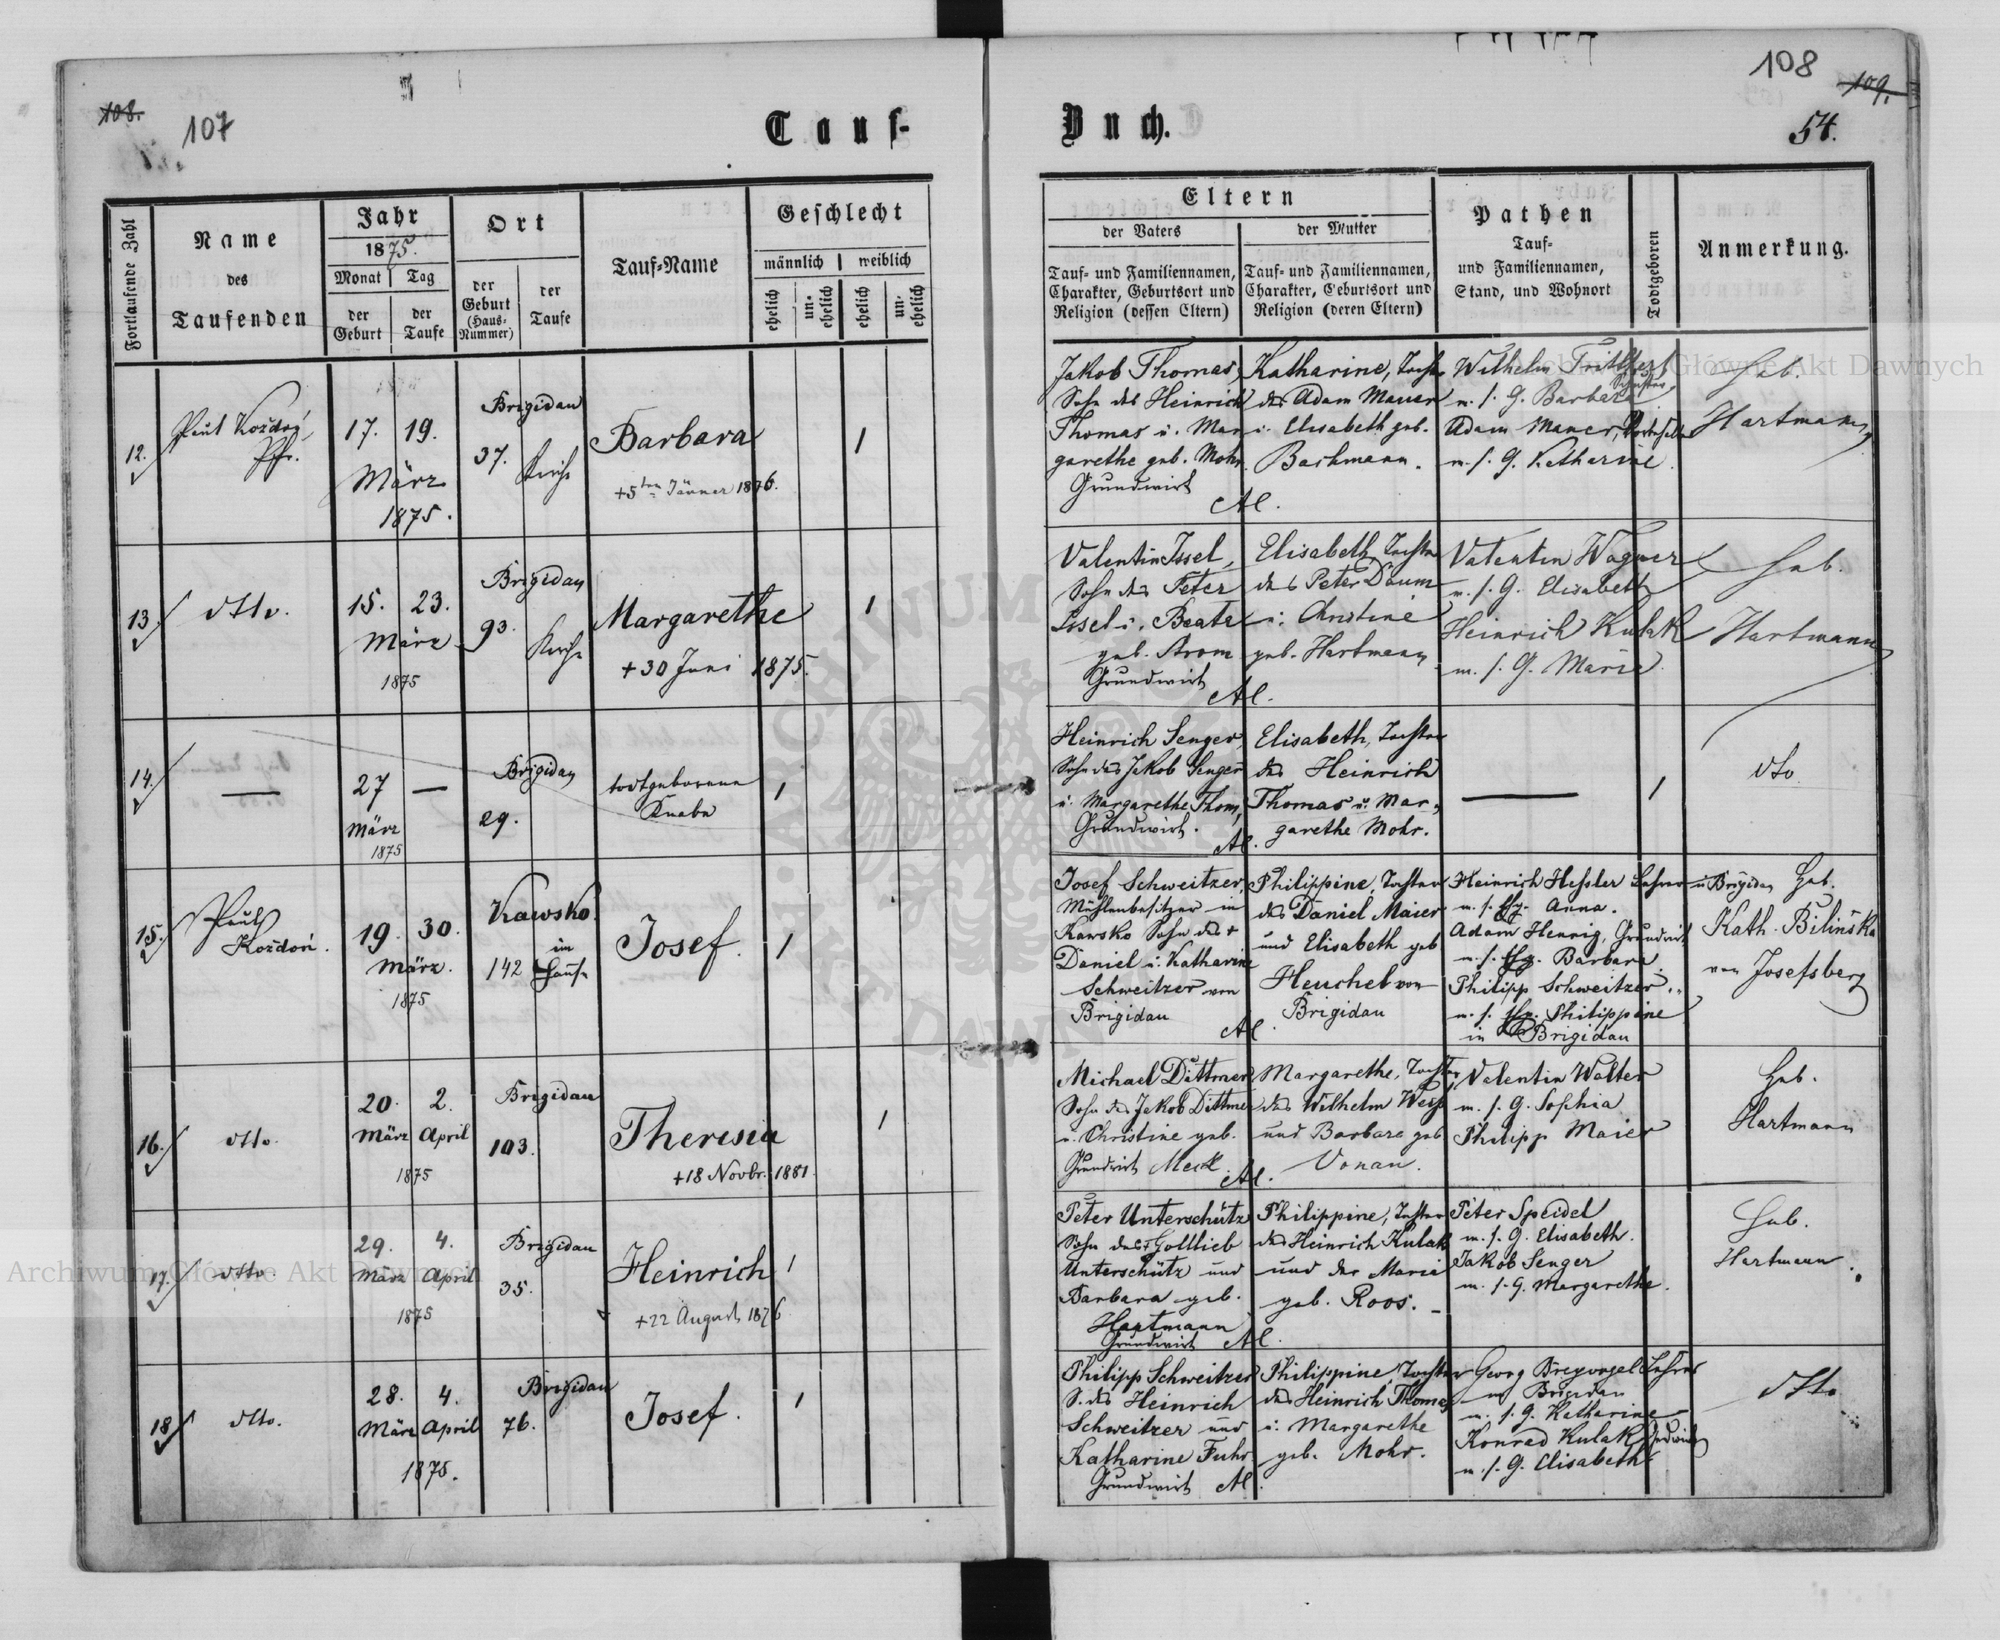 108.
107
Tauf-
Buch.
108
109.
54.
Fortlaufende Zahl
Name
des
Taufenden
Jahr
1875.
Monat
Tag
der
Geburt
der
Taufe
Ort
der
Geburt
(Haus-
Nummer)
der
Taufe
Tauf-Name
Geschlecht
männlich
weiblich
ehelich
un-
ehelich
ehelich
un-
ehelich
Eltern
der Vaters
der Mutter
Tauf- und Familiennamen,
Charakter, Geburtsort und
Religion (dessen Eltern)
Tauf- und Familiennamen,
Charakter, Geburtsort und
Religion (deren Eltern)
Pathen
Tauf-
und Familiennamen,
Stand, und Wohnort
Todtgeboren
Anmerkung.
12.
Paul Koždoń
Pfr.
17. 19.
März
1875.
Brigidau
37.
Kirche
Barbara
+5ten Jänner 1876.
1
Jakob Thomas,
Sohn des Heinrich
Thomas u. Mar
garethe geb. Mohr
Grundwirt
Al.
Katharine, Tochter
des Adam Mauer
u. Elisabeth geb.
Bachmann.
Wilhelm
m. s. G. Barbara
Adam Mauer,
m. s. G. Katharine
Heb.
Hartmann
13.
dtto.
15. 23.
März
1875
Brigidau
93.
Kirche
Margarethe
+30 Juni 1875.
1
Valentin Issel,
Sohn des Peter
Issel u. Beate
geb. Arom
Grundwirt
Al.
Elisabeth, Tochter
des Peter Daum
u. Christine
geb. Hartmann
Valentin Wagner
m. s. G. Elisabeth
Heinrich Kulak
m. s. G. Marie
Heb.
Hartmann
14.
—
27 —
März
1875
Brigidau
29.
todtgeborener
Knabe
1
Heinrich Senger,
Sohn des Jakob Senger
u. Margarethe Thom,
Grundwirt.
Al.
Elisabeth, Tochter
des Heinrich
Thomas u. Mar-
garethe Mohr.
—
1
dto
15.
Paul
Koždoń.
19. 30.
März.
1875
Kawsko
142
im
Hause
Josef.
1
Josef Schweitzer,
Mühlenbesitzer in
Kawsko Sohn des +
Daniel u. Katharine
Schweitzer von
Brigidau
Al.
Philippine, Tochter
des Daniel Maier
und Elisabeth geb
Heuchel von
Brigidau
Heinrich Hessler Lehrer in Brigidau
m. s. Anna.
Adam Hennig, Grundwirt
m. s. Barbara.
Philipp Schweitzer
m. s. Philippine
in Brigidau
Heb.
Kath. Bilińska
von Josefsberg
16.
dtto.
20. 2.
März April
1875
Brigidau
103.
Theresia
+18 Novbr. 1881.
1
Michael Dittmer
Sohn des Jakob Dittmer
u. Christine geb.
Grundwirt Meck
Al.
Margarethe, Tochter
des Wilhelm Wesp
und Barbara geb
Vonau.
Valentin Walter
m. s. G. Sophia
Philipp Maier
Heb.
Hartmann
17.
dtto.
29. 4.
März April
1875
Brigidau
35.
Heinrich
+22 August 1876
1
Peter Unterschütz
Sohn des + Gottlieb
Unterschütz und
Barbara geb.
Hartmann
Grundwirt Al.
Philippine, Tochter
des Heinrich Kulak
und der Marie
geb. Roos.
Peter Speidel
m. s. G. Elisabeth.
Jakob Senger
m. s. G. Margarethe.
Heb.
Hartmann.
18.
dtto.
28. 4.
März April
1875.
Brigidau
76.
Josef.
1
Philipp Schweitzer
S. des Heinrich
Schweitzer und
Katharine Fuhr
Grundwirt Al.
Philippine, Tochter
des Heinrich Thomas
u. Margarethe
geb. Mohr.
Georg Breyvogel Lehrer
in Brigidau
m. s. G. Katharine
Konrad Kulak
m. s. G. Elisabeth
dtto
Archiwum Główne Akt Dawnych
Archiwum Główne Akt Dawnych